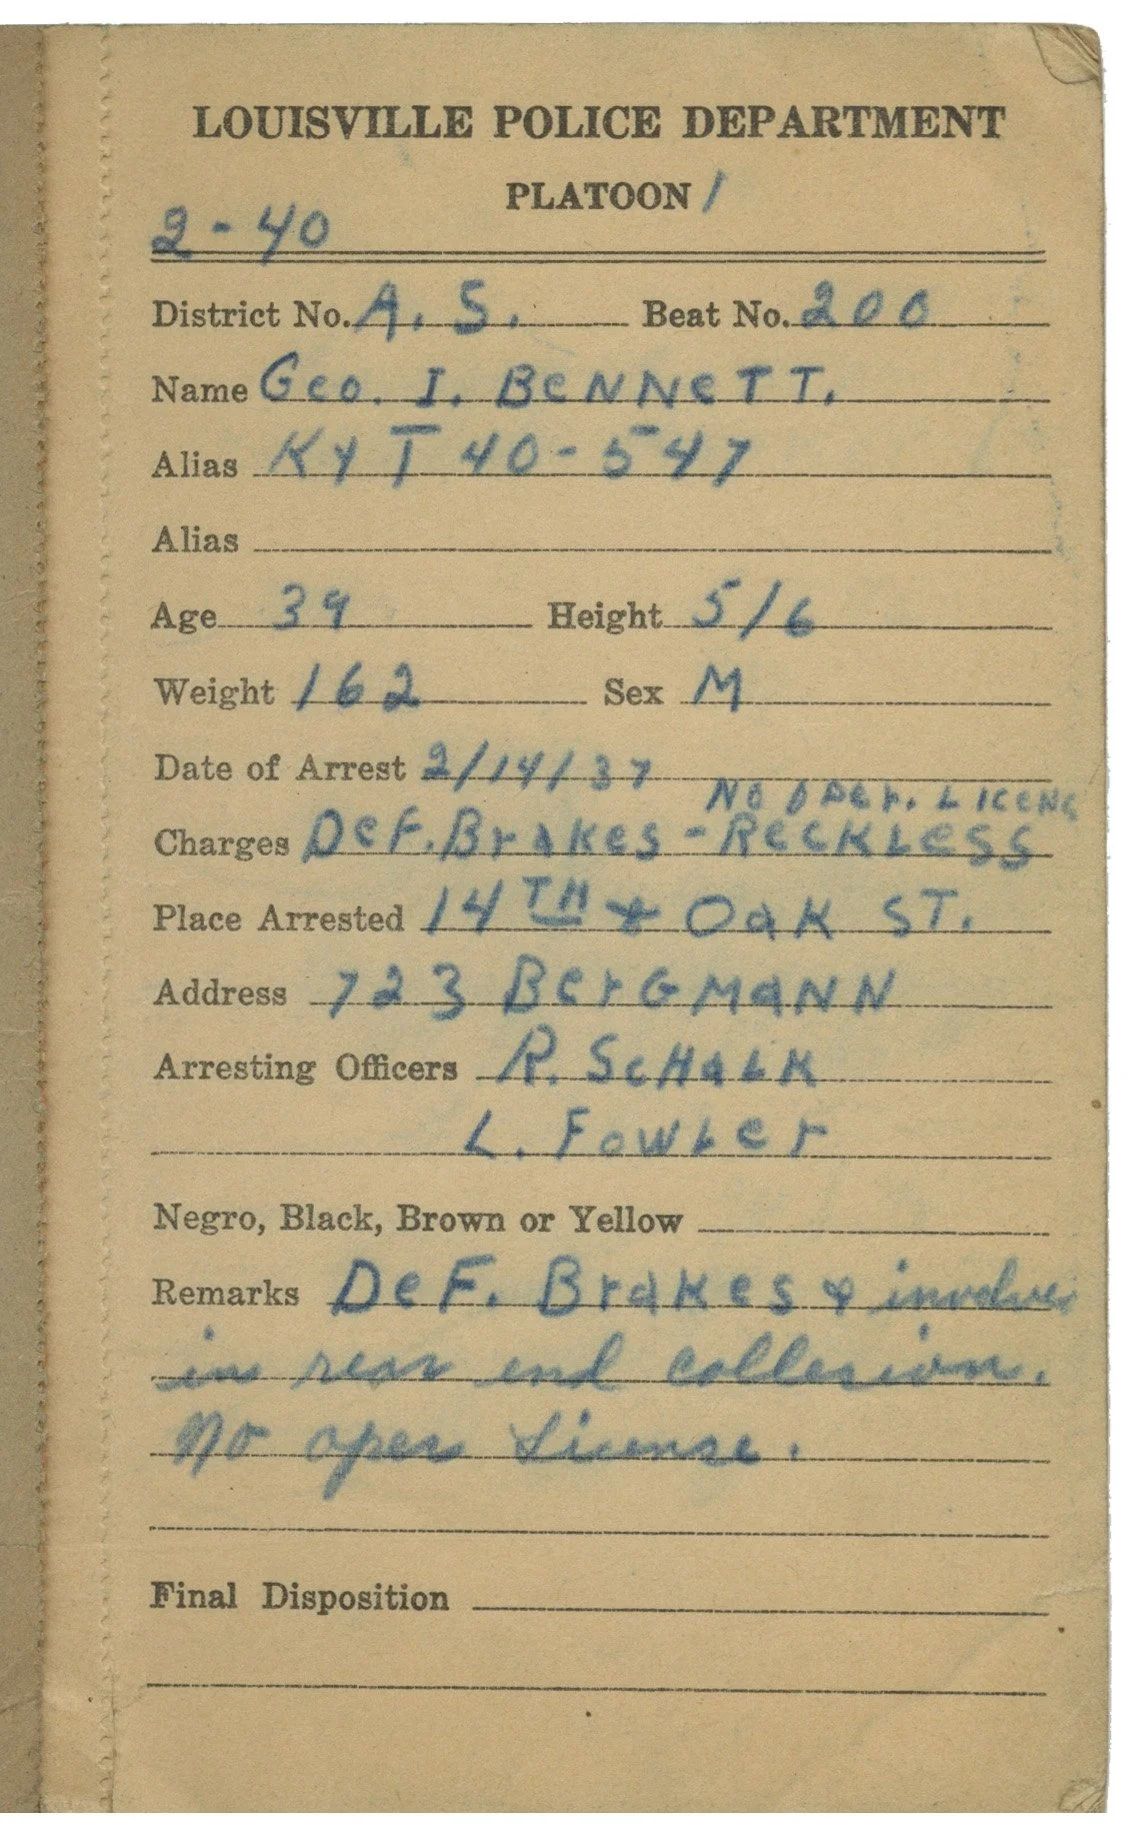 LOUISVILLE POLICE DEPARTMENT
PLATOON 1
2-40
District No. A. S. Beat No. 200
Name Geo. I. BeNNeTT.
Alias Ky T 40-547
Alias
Age 39 Height 5/6
Weight 162 Sex M
Date of Arrest 2/14/37
NO OPer. LICENS
Charges DeF. Brakes - ReCKLeSS
Place Arrested 14TH & Oak ST.
Address 723 BerGMaNN
Arresting Officers R. ScHaLK
L. FowLer
Negro, Black, Brown or Yellow
Remarks DeF. Brakes & involved
in rear end collesion.
No oper License.
Final Disposition